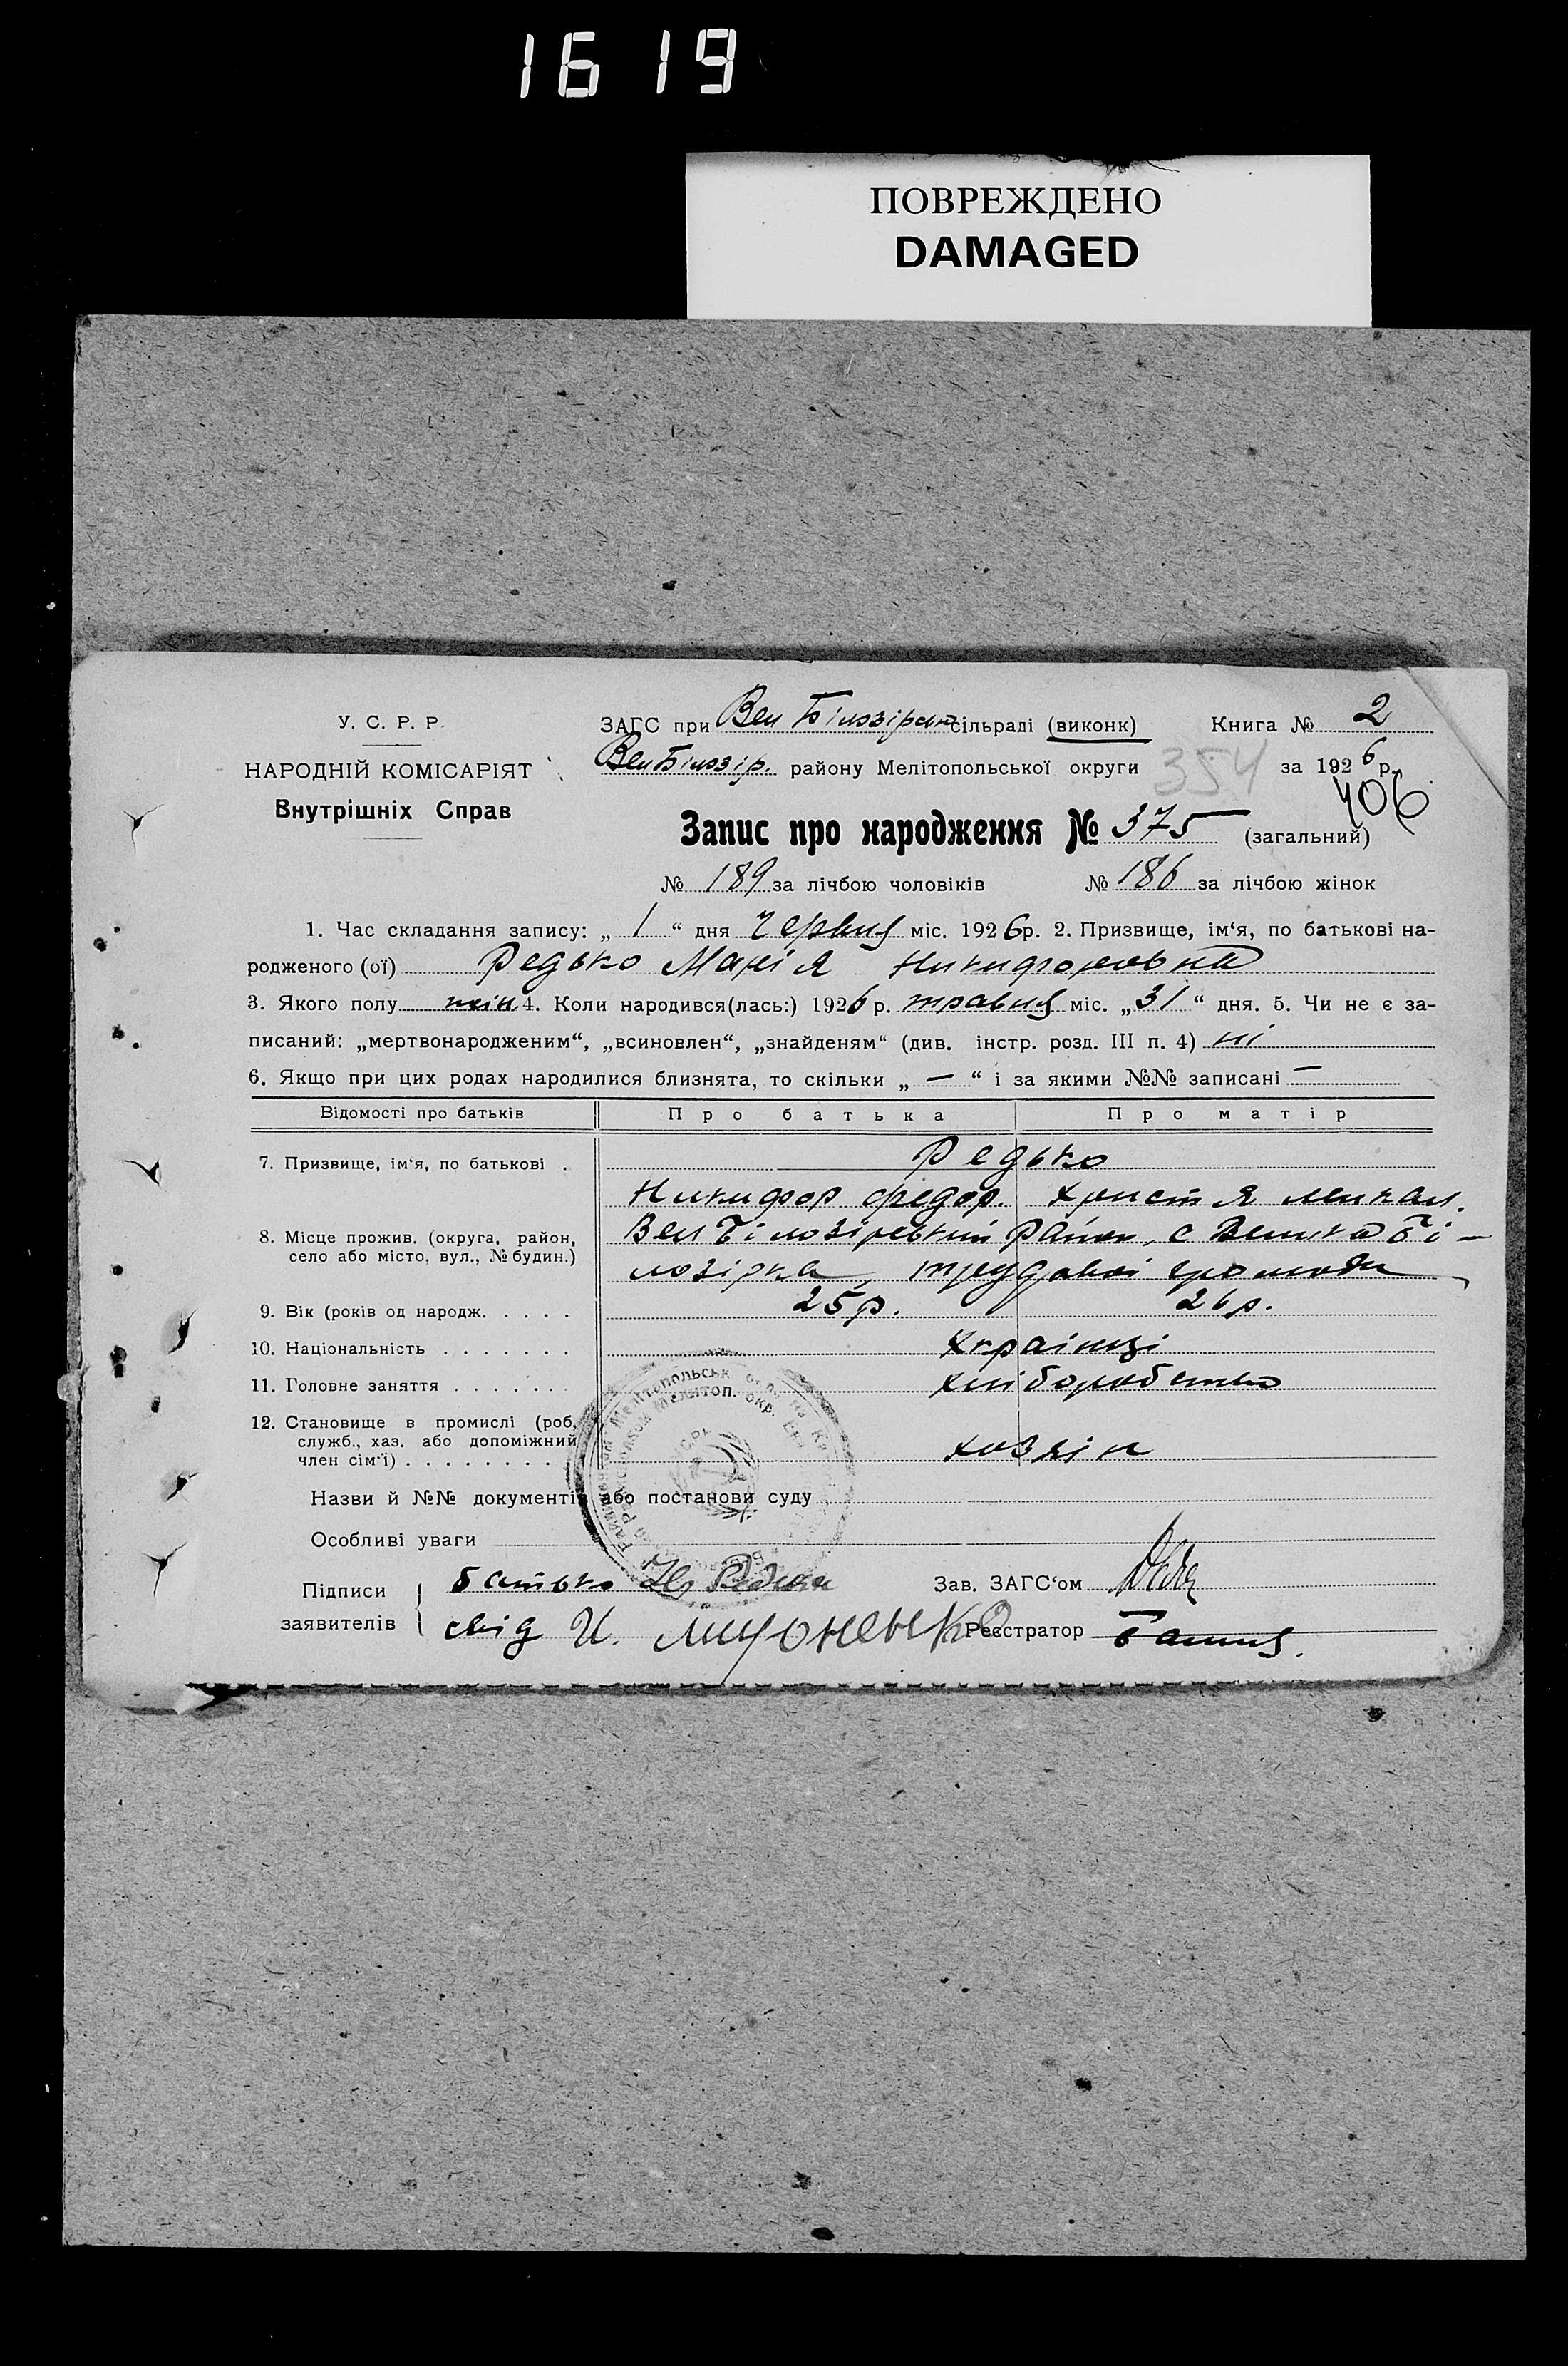 1619
ПОВРЕЖДЕНО
DAMAGED
У. С. Р. Р.
НАРОДНІЙ КОМІСАРІЯТ
Внутрішніх Справ
ЗАГС при Вел Білозірськ сільраді (виконк) Книга № 2
Вел Білозір. району Мелітопольської округи 354 за 1926 р.
406
Запис про народження № 375 (загальний)
№ 189 за лічбою чоловіків № 186 за лічбою жінок
1. Час складання запису: „ 1 “ дня Червня міс. 1926р. 2. Призвище, ім‘я, по батькові на-
родженого (ої) Редько Марія Никифоровна
3. Якого полу жін 4. Коли народився(лась:) 1926 р. травня міс. „31“ дня. 5. Чи не є за-
писаний: „мертвонародженим“, „всиновлен“, „знайденям“ (див. інстр. розд. III п. 4) ні
6. Якщо при цих родах народилися близнята, то скільки „ — “ і за якими №№ записані —
Відомості про батьків Про батька Про матір
7. Призвище, ім‘я, по батькові . Редько
Никифор Федор. Христя Михал.
8. Місце прожив. (округа, район, село або місто, вул., № будин.) Вел Білозірський район, с Велика Бі-
лозірка, трудової громади
9. Вік (років од народж. . . . . 25 р. 26 р.
10. Національність . . . . . . . Українці
11. Головне заняття . . . . . . . хліборобство
12. Становище в промислі (роб.
служб., хаз. або допоміжний
член сім‘ї) . . . . . . . . хозяін
Назви й №№ документів або постанови суду
Особливі уваги
Підписи заявителів
батько Н Редька
Зав. ЗАГС‘ом
свід И. Мироненько
Реєстратор